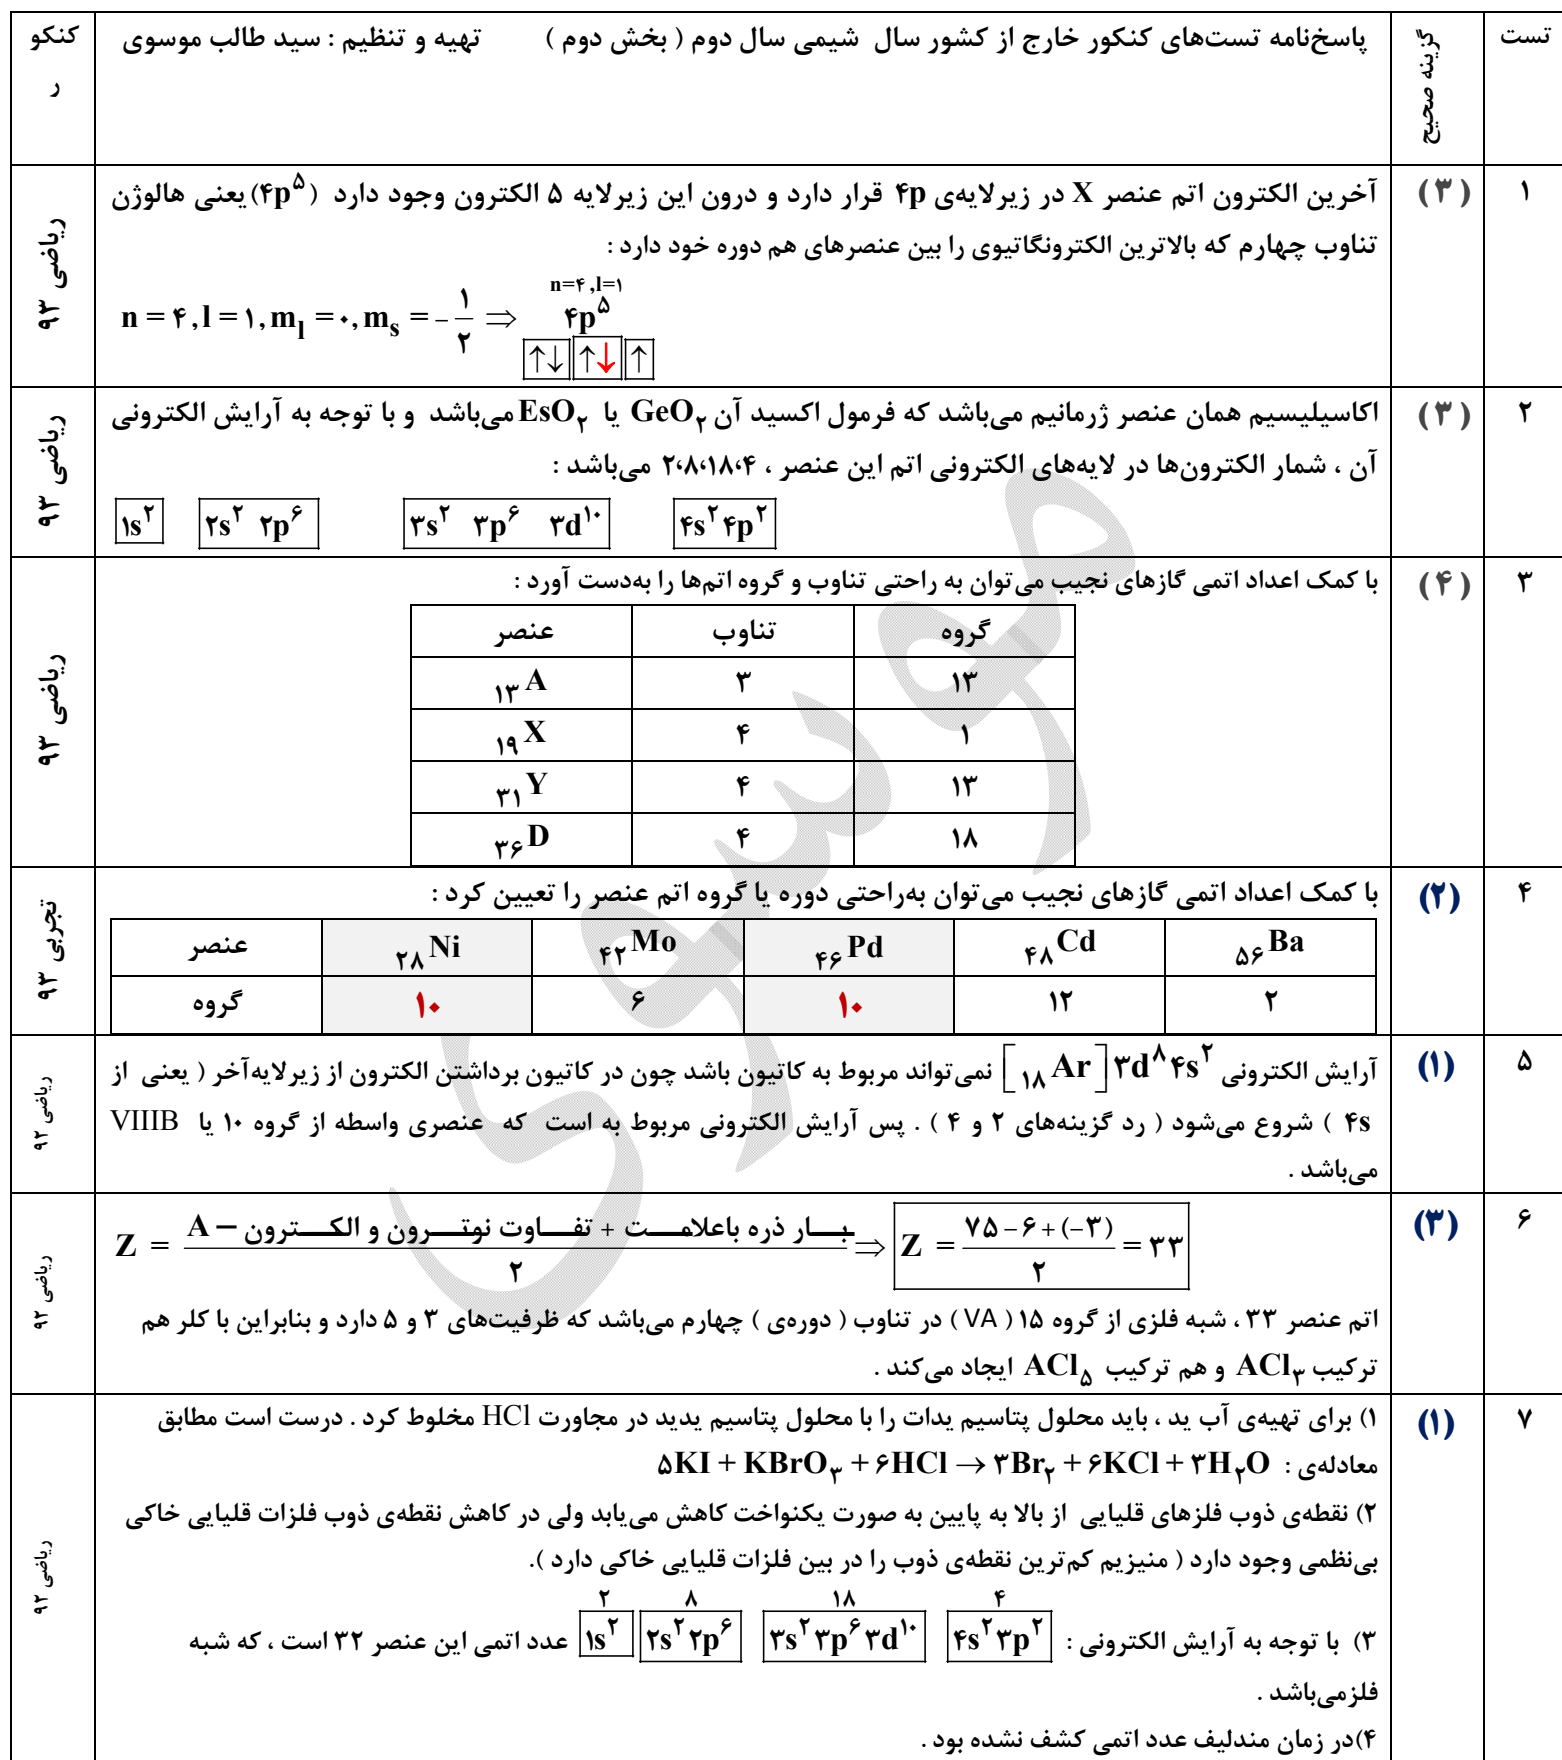 تست گزینه صحیح پاسخ‌نامه تست‌های کنکور خارج از کشور سال شیمی سال دوم ( بخش دوم ) تهیه و تنظیم : سید طالب موسوی کنکو
ر
۱ (۳) آخرین الکترون اتم عنصر X در زیرلایه‌ی ۴p قرار دارد و درون این زیرلایه ۵ الکترون وجود دارد (۴p⁵) یعنی هالوژن ریاضی ۹۳
تناوب چهارم که بالاترین الکترونگاتیوی را بین عنصرهای هم دوره خود دارد :
n=۴,l=۱
n = ۴, l = ۱, m_l = ۰, m_s = -۱/۲ ⇒ ۴p⁵
↑↓ ↑↓ ↑
۲ (۳) اکاسیلیسیم همان عنصر ژرمانیم می‌باشد که فرمول اکسید آن GeO₂ یا EsO₂ می‌باشد و با توجه به آرایش الکترونی ریاضی ۹۳
آن ، شمار الکترون‌ها در لایه‌های الکترونی اتم این عنصر ، ۲،۸،۱۸،۴ می‌باشد :
۱s² ۲s² ۲p⁶ ۳s² ۳p⁶ ۳d¹⁰ ۴s² ۴p²
۳ (۴) با کمک اعداد اتمی گازهای نجیب می‌توان به راحتی تناوب و گروه اتم‌ها را به‌دست آورد : ریاضی ۹۳
گروه تناوب عنصر
۱۳ ۳ ₁₃A
۱ ۴ ₁₉X
۱۳ ۴ ₃₁Y
۱۸ ۴ ₃₆D
۴ (۲) با کمک اعداد اتمی گازهای نجیب می‌توان به‌راحتی دوره یا گروه اتم عنصر را تعیین کرد : تجربی ۹۳
عنصر ₂₈Ni ₄₂Mo ₄₆Pd ₄₈Cd ₅₆Ba
گروه ۱۰ ۶ ۱۰ ۱۲ ۲
۵ (۱) آرایش الکترونی [₁₈Ar]۳d⁸۴s² نمی‌تواند مربوط به کاتیون باشد چون در کاتیون برداشتن الکترون از زیرلایه‌آخر ( یعنی از ریاضی ۹۲
۴s ) شروع می‌شود ( رد گزینه‌های ۲ و ۴ ) . پس آرایش الکترونی مربوط به است که عنصری واسطه از گروه ۱۰ یا VIIIB
می‌باشد .
۶ (۳) Z = (A – بـــار ذره باعلامـــت + تفـــاوت نوتـــرون و الکـــترون)/۲ ⇒ Z = (۷۵-۶+(-۳))/۲ = ۳۳ ریاضی ۹۲
اتم عنصر ۳۳ ، شبه فلزی از گروه ۱۵ ( VA ) در تناوب ( دوره‌ی ) چهارم می‌باشد که ظرفیت‌های ۳ و ۵ دارد و بنابراین با کلر هم
ترکیب ACl₃ و هم ترکیب ACl₅ ایجاد می‌کند .
۷ (۱) ۱) برای تهیه‌ی آب ید ، باید محلول پتاسیم یدات را با محلول پتاسیم یدید در مجاورت HCl مخلوط کرد . درست است مطابق ریاضی ۹۲
معادله‌ی : ۵KI + KBrO₃ + ۶HCl → ۳Br₂ + ۶KCl + ۳H₂O
۲) نقطه‌ی ذوب فلزهای قلیایی از بالا به پایین به صورت یکنواخت کاهش می‌یابد ولی در کاهش نقطه‌ی ذوب فلزات قلیایی خاکی
بی‌نظمی وجود دارد ( منیزیم کم‌ترین نقطه‌ی ذوب را در بین فلزات قلیایی خاکی دارد ).
۲ ۸ ۱۸ ۴
۳) با توجه به آرایش الکترونی : ۱s² ۲s²۲p⁶ ۳s²۳p⁶۳d¹⁰ ۴s²۳p² عدد اتمی این عنصر ۳۲ است ، که شبه
فلزمی‌باشد .
۴)در زمان مندلیف عدد اتمی کشف نشده بود .
موسوی